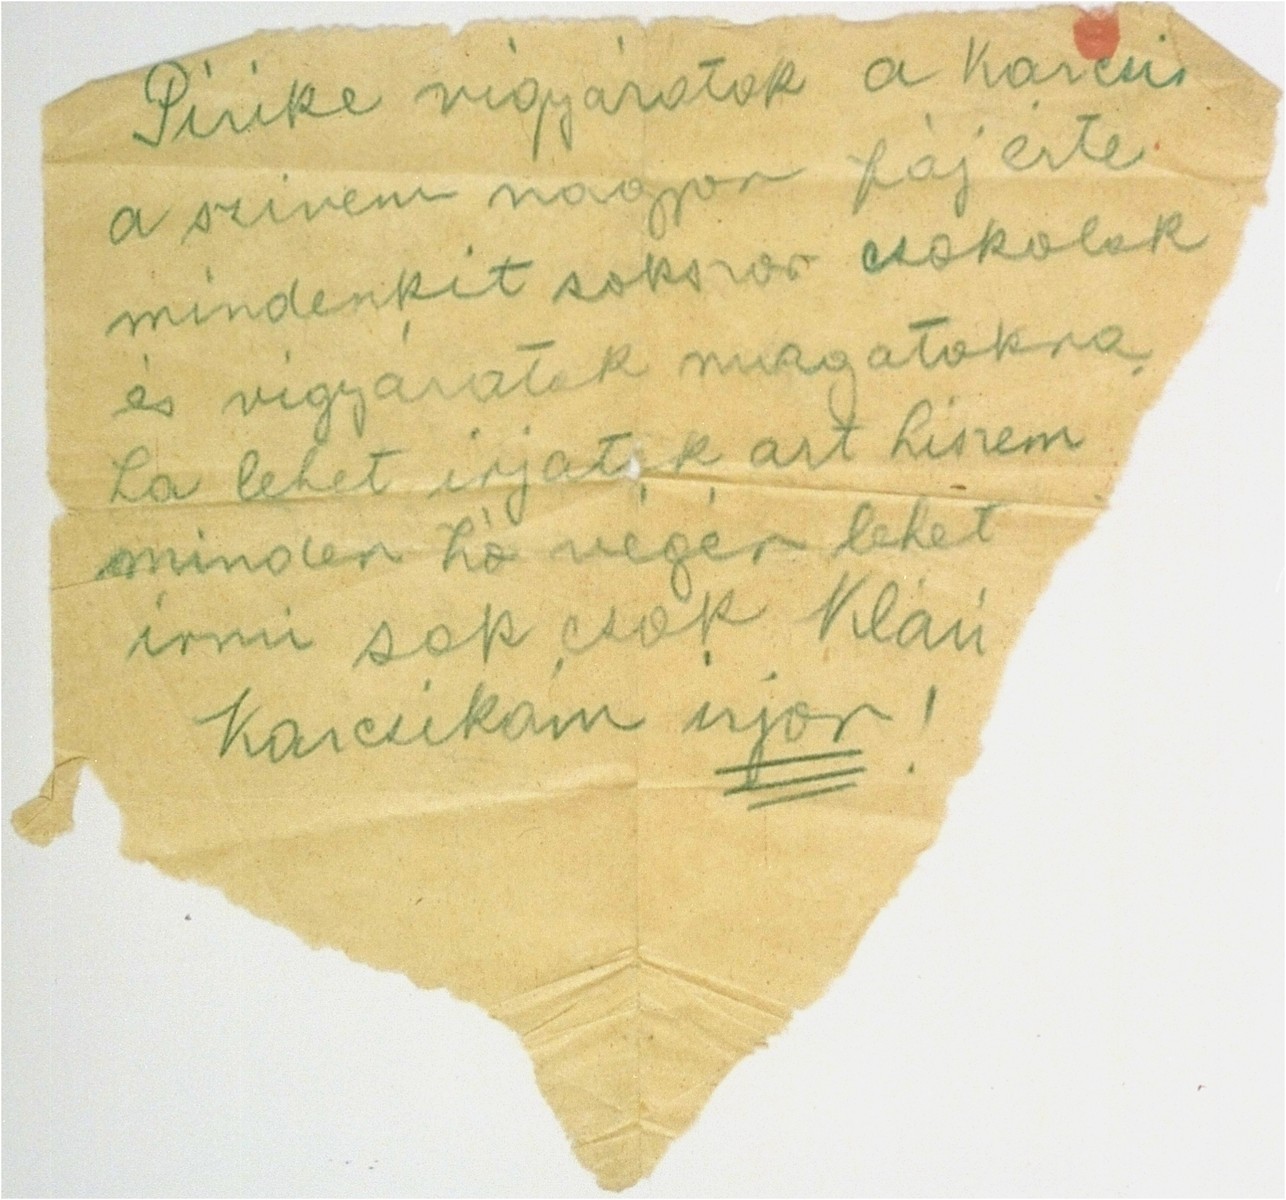 Pirike vigyázatok a Karcsis
a szivem nagyon fáj érte
mindenkit sokszor csokolok
és vigyázatok magatokra,
ha lehet irjatok azt hiszem
minden hó végén lehet
irni sok csók Klári
Karcsikám irjon!